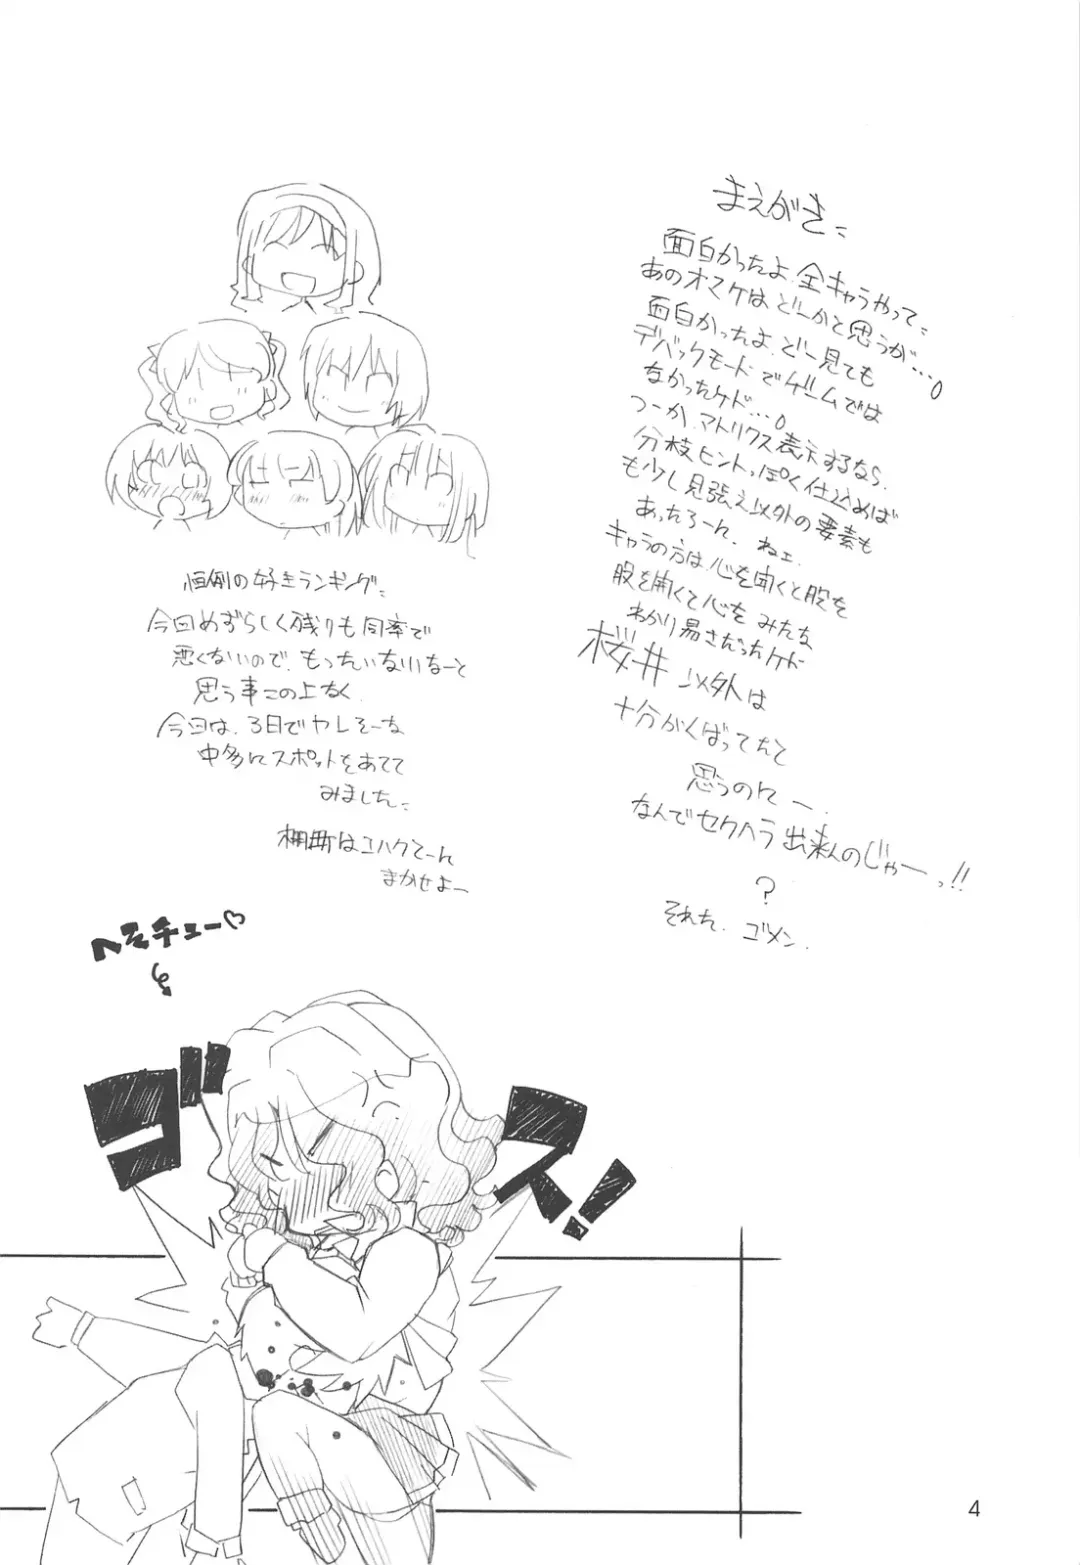 まえがき:
面白かったよ、全キャラやって:
あのオマケは、どーかと思うが…。
面白かったよ、どー見ても
デバックモードでゲームでは
なかったケド…。
つーか、マトリクス表示するなら、
分枝ヒントっぽく仕込めば
も少し見張え以外の要素も
あったろーに、ねェ、
キャラの方は、心を開くと股を
股を開くと心を みたな
わかり易さだったケド
桜井 以外は
十分がんばってたと
思うのにー、
なんでセクハラ出来んのじゃーっ!!
?
それも、ゴメン、
恒例の好きランキング:
今回めずらしく残りも同率で
悪くないので、もったいないなーと
思う事この上なく、
今回は、3日でヤレそーな
中多にスポットをあてて
みました:
棚町はコハクてーに
まかせよー
ヘそチュー♡
ゴス!
4